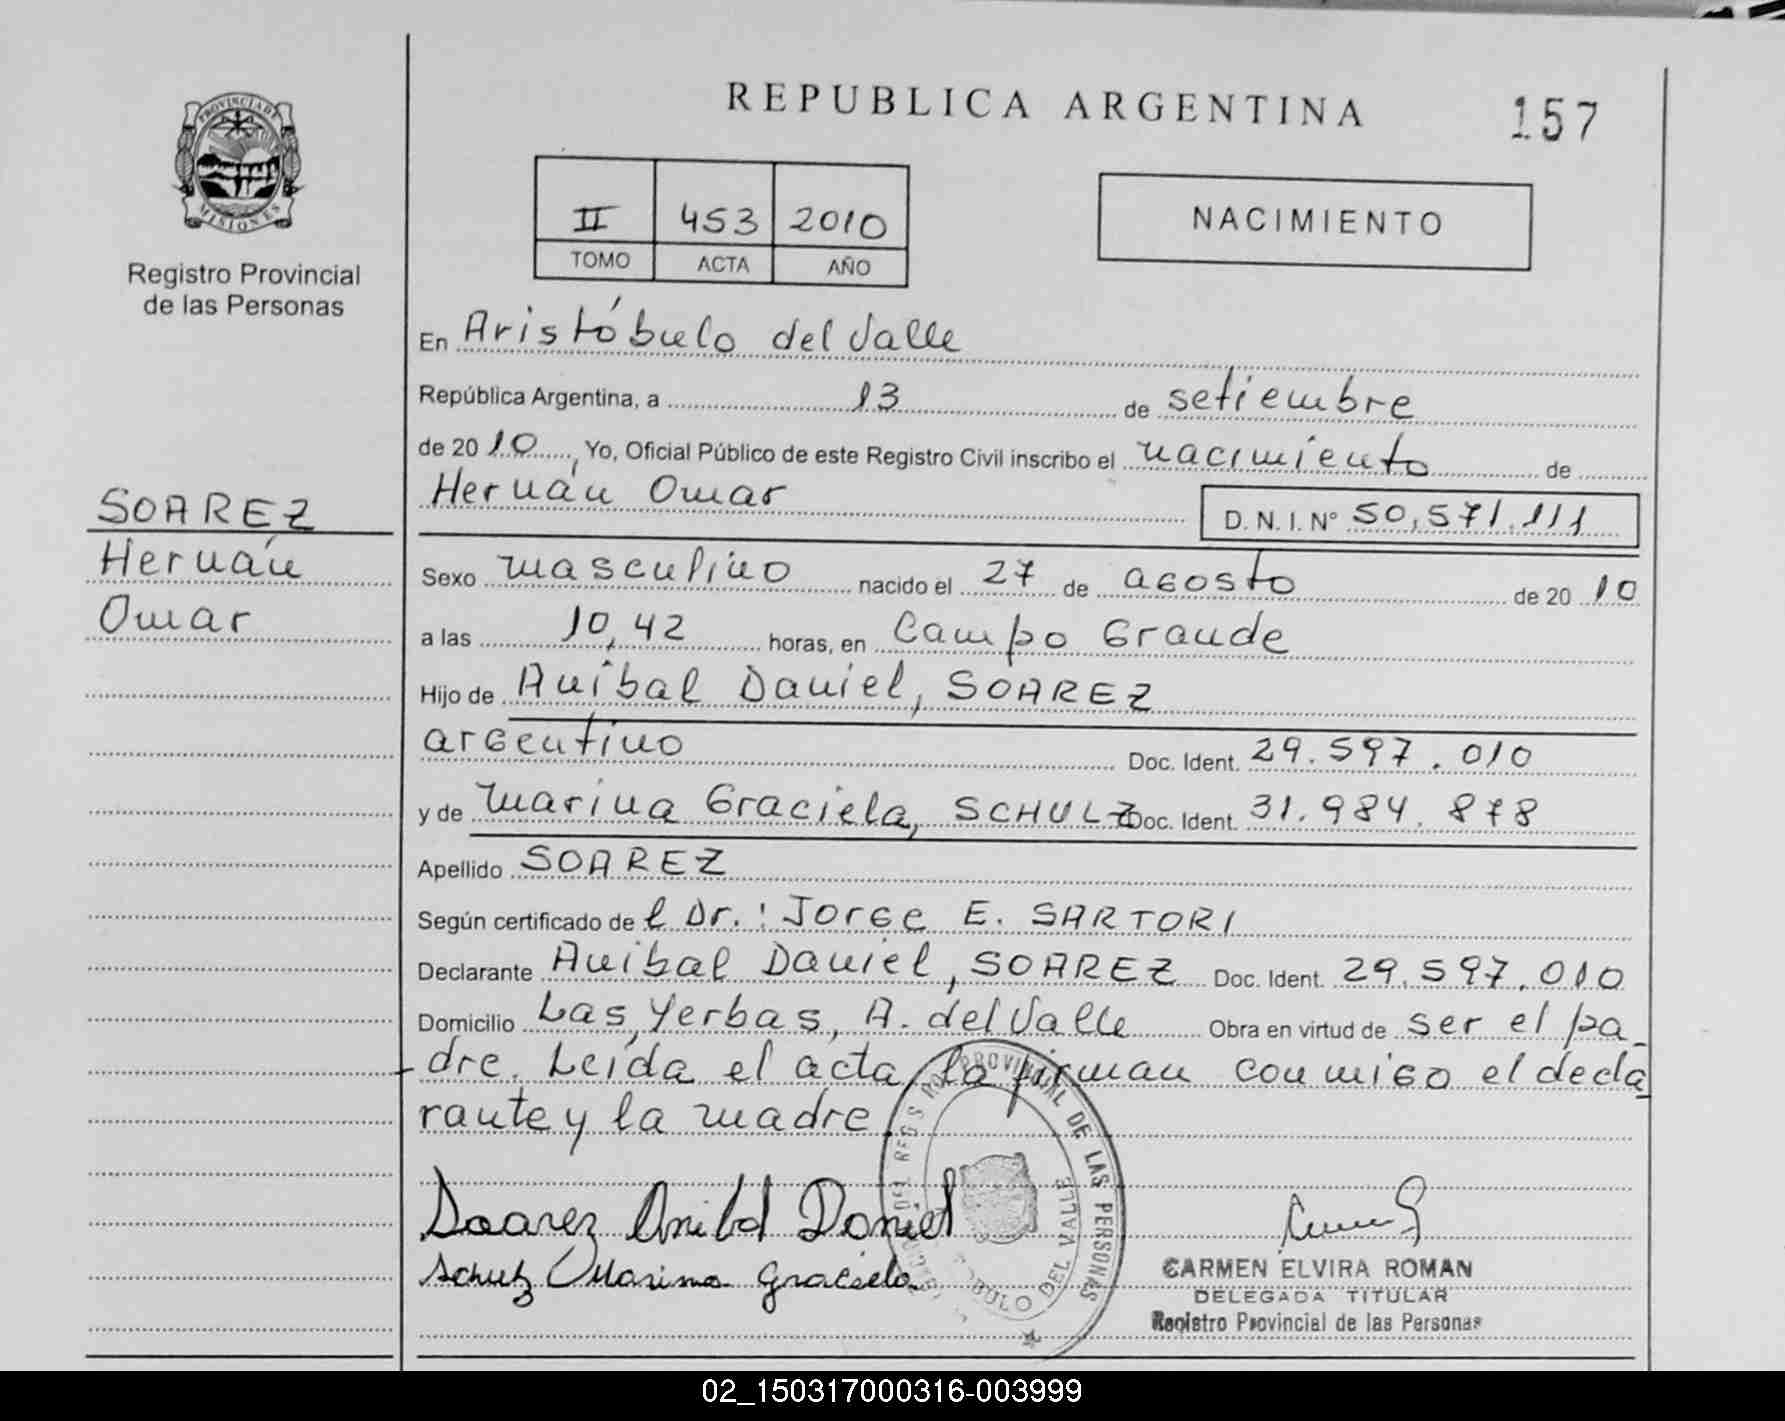 REPUBLICA ARGENTINA
157
PROVINCIA DE
MISIONES
Registro Provincial
de las Personas
II 453 2010
TOMO ACTA AÑO
NACIMIENTO
En Aristóbulo del Valle
República Argentina, a 13 de setiembre
de 2010, Yo, Oficial Público de este Registro Civil inscribo el nacimiento de
Hernán Omar D.N.I.Nº 50,571,111
SOAREZ
Hernán
Omar
Sexo masculino nacido el 27 de agosto de 2010
a las 10,42 horas, en Campo Grande
Hijo de Anibal Daniel, SOAREZ
argentino Doc. Ident. 29.597.010
y de Marina Graciela, SCHULZ Doc. Ident. 31.984.878
Apellido SOAREZ
Según certificado del Dr.: Jorge E. SARTORI
Declarante Anibal Daniel, SOAREZ Doc. Ident. 29.597.010
Domicilio Las Yerbas, A. del Valle Obra en virtud de ser el pa_
dre. Leída el acta, la firman conmigo el decla
rante y la madre
Soarez Anibal Daniel
Schulz Marina Graciela
PROVINCIAL DE LAS PERSONAS
DEL VALLE
CARMEN ELVIRA ROMAN
DELEGADA TITULAR
Registro Provincial de las Personas
02_150317000316-003999